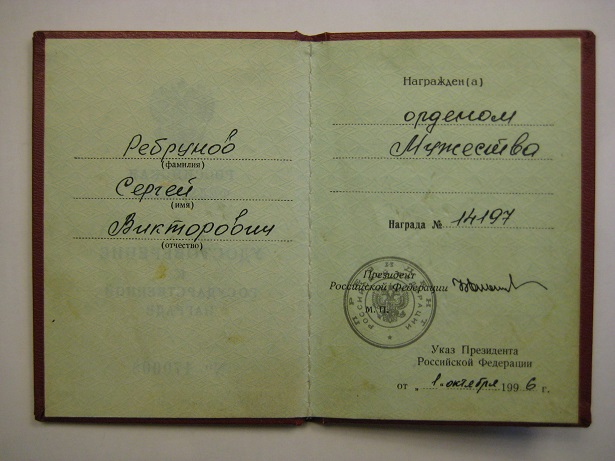 Ребрунов
(фамилия)
Сергей
(имя)
Викторович
(отчество)
Награжден(а)
орденом
Мужества
Награда № 14197
Президент
Российской Федерации
М. П.
Указ Президента
Российской Федерации
от „1" октября 1996 г.